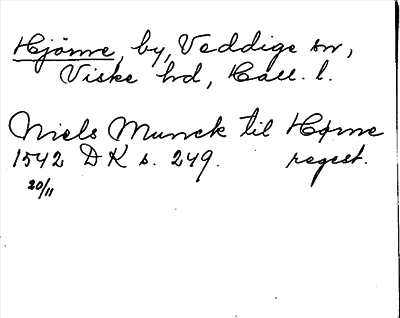 Hjörne, by, Veddige sn,
Viske hd, Hall. l.
Niels Munck til Hørne
1542 DK s. 249. regest.
20/11